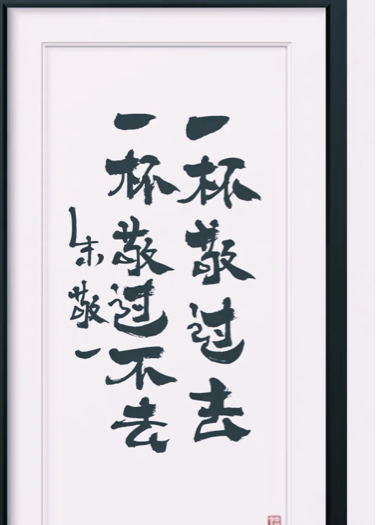 一杯敬过去
一杯敬过不去
朱敬一